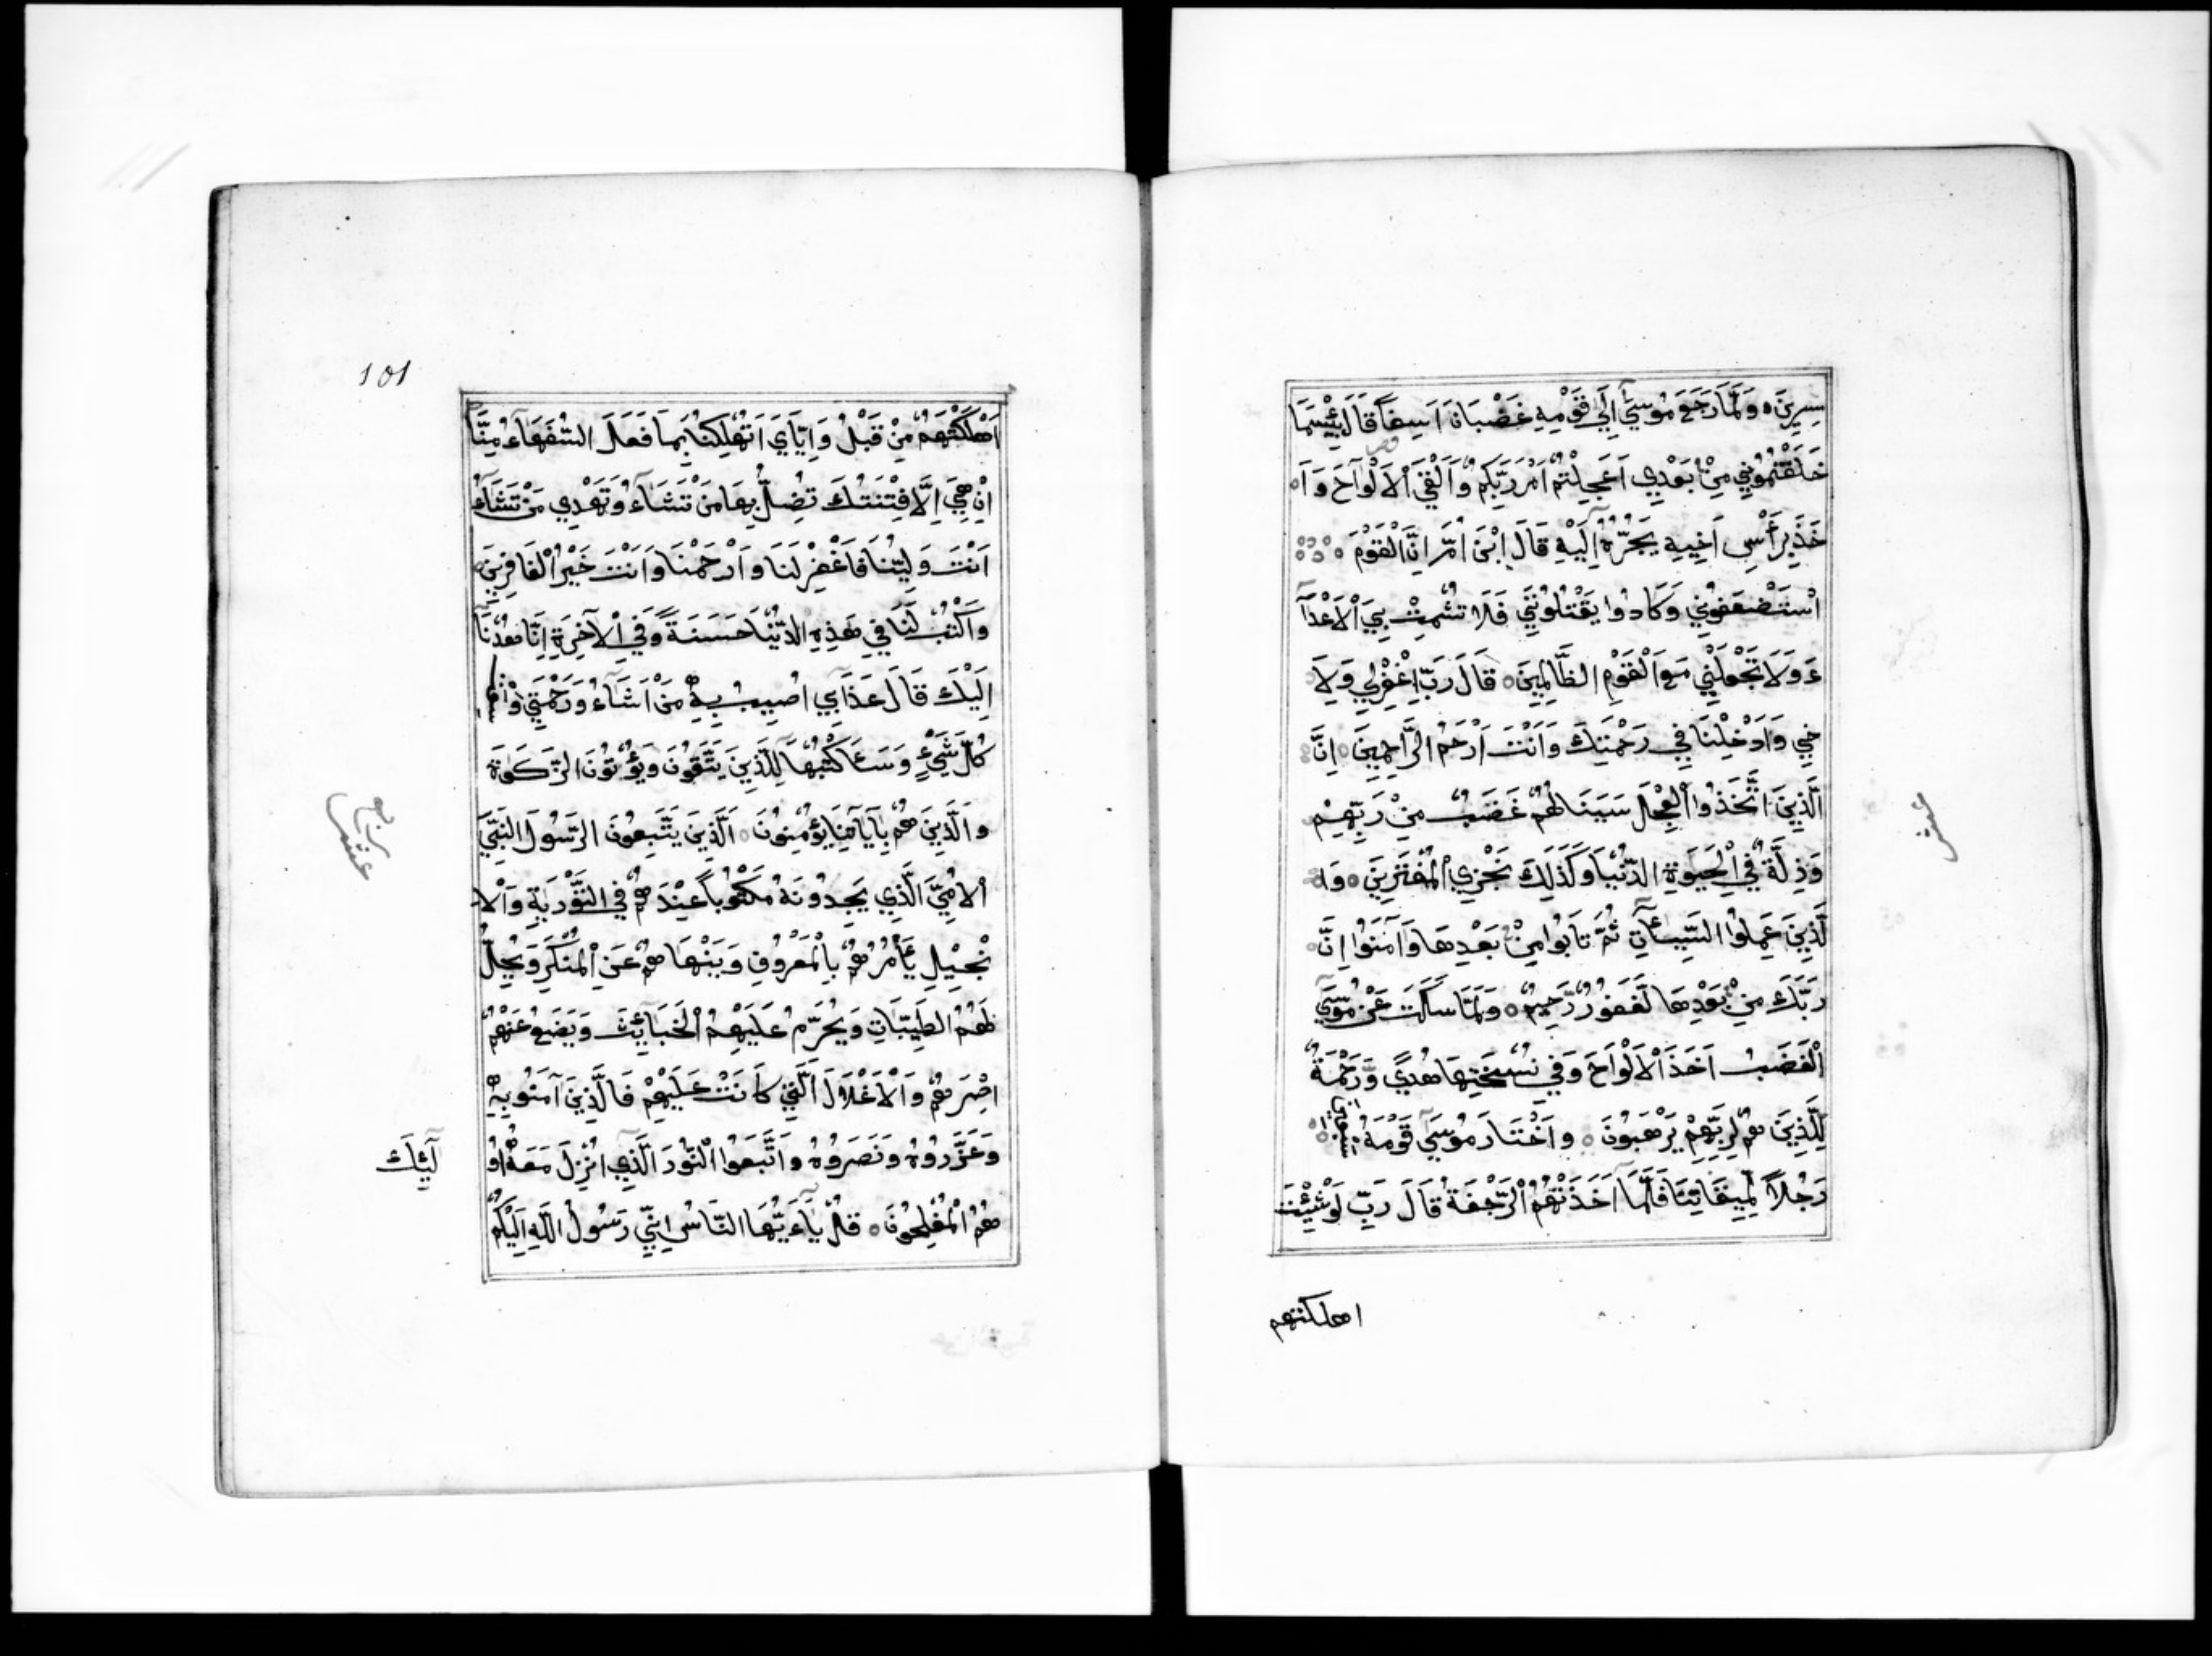 سِرِينَ ه وَلَمَّا رَجَعَ مُوسَىٰٓ اِلَىٰ قَوْمِهِ غَضْبَانَ اَسِفاً قَالَ بِئْسَمَا
خَلَفْتُمُونِي مِنْ بَعْدِي اَعَجِلْتُمْ اَمْرَ رَبِّكُمْ وَاَلْقَىَ اْلاَلْوَاحَ وَاَ
خَذَ بِرَأْسِ اَخِيهِ يَجُرُّهُٓ اِلَيْهِ قَالَ ابْنَ اُمَّ اِنَّ الْقَوْمَ
اسْتَضْعَفُونِي وَكَادُوا يَقْتُلُونَنِي فَلَا تُشْمِتْ بِيَ اْلاَعْدَآ
ءَ وَلَا تَجْعَلْنِي مَعَ الْقَوْمِ الظَّالِمِينَ ه قَالَ رَبِّ اغْفِرْلِي وَلِاَ
خِي وَاَدْخِلْنَا فِي رَحْمَتِكَ وَاَنْتَ اَرْحَمُ الرَّاحِمِينَ ه اِنَّ
الَّذِينَ اتَّخَذُوا الْعِجْلَ سَيَنَالُهُمْ غَضَبٌ مِنْ رَبِّهِمْ
وَذِلَّةٌ فِي الْحَيَوٰةِ الدُّنْيَا وَكَذَلِكَ نَجْزِي الْمُفْتَرِينَ ه وَا
لَّذِينَ عَمِلُوا السَّيِّئَاٰتِ ثُمَّ تَابُوا مِنْ بَعْدِهَا وَآمَنُوا اِنَّ
رَبَّكَ مِنْ بَعْدِهَا لَغَفُورٌ رَحِيمٌ ه وَلَمَّا سَكَتَ عَنْ مُوسَى
الْغَضَبُ اَخَذَ اْلاَلْوَاحَ وَفِي نُسْخَتِهَا هُدًى وَرَحْمَةٌ
لِلَّذِينَ هُمْ لِرَبِّهِمْ يَرْهَبُونَ ه وَاخْتَارَ مُوسَىٰ قَوْمَهُ سبعين
رَجُلاً لِمِيقَاتِنَا فَلَمَّآ اَخَذَتْهُمُ الرَّجْفَةُ قَالَ رَبِّ لَوْ شِئْتَ
اهلكتهم
عشر
101
اَهْلَكْتَهُمْ مِنْ قَبْلُ وَاِيَّايَ اَتُهْلِكُنَا بِمَا فَعَلَ السُّفَهَآءُ مِنَّا
اِنْ هِيَ اِلَّا فِتْنَتُكَ تُضِلُّ بِهَا مَنْ تَشَآءُ وَتَهْدِي مَنْ تَشَآءُ
اَنْتَ وَلِيُّنَا فَاغْفِرْ لَنَا وَارْحَمْنَا وَاَنْتَ خَيْرُ الْغَافِرِينَ
وَاكْتُبْ لَنَا فِي هَذِهِ الدُّنْيَا حَسَنَةً وَفِي اْلآخِرَةِ اِنَّا هُدْنَآ
اِلَيْكَ قَالَ عَذَابِي اُصِيبُ بِهِ مَنْ اَشَآءُ وَرَحْمَتِي
كُلَّ شَيْءٍ وَسَئَاكْتُبُهَا لِلَّذِينَ يَتَّقُونَ وَيُؤْتُونَ الزَّكَوٰةَ
وَالَّذِينَ هُمْ بِاَيَاتِنَا يُؤْمِنُونَ ه اَلَّذِينَ يَتَّبِعُونَ الرَّسُولَ النَّبِيَّ
اْلاُمِّيَّ الَّذِي يَجِدُونَهُ مَكْتُوباً عِنْدَهُمْ فِي التَّوْرَيةِ وَاْلاِ
نْجِيْلِ يَأْمُرُهُمْ بِالْمَعْرُوفِ وَيَنْهَاهُمْ عَنِ الْمُنْكَرِ وَيُحِلُّ
لَهُمُ الطَّيِّبَاتِ وَيُحَرِّمُ عَلَيْهِمُ الْخَبَآئِثَ وَيَضَعُ عَنْهُمْ
اِصْرَهُمْ وَاْلاَغْلَالَ الَّتِي كَانَتْ عَلَيْهِمْ فَالَّذِينَ آمَنُوا بِهِ
وَعَزَّرُوهُ وَنَصَرُوهُ وَاتَّبَعُوا النُّورَ الَّذِي اُنْزِلَ مَعَهُٓ اُو
لَٓئِكَ
هُمُ الْمُفْلِحُونَ ه قُلْ يَآءَيُّهَا النَّاسُ اِنِّي رَسُولُ اللَّهِ اِلَيْكُمْ